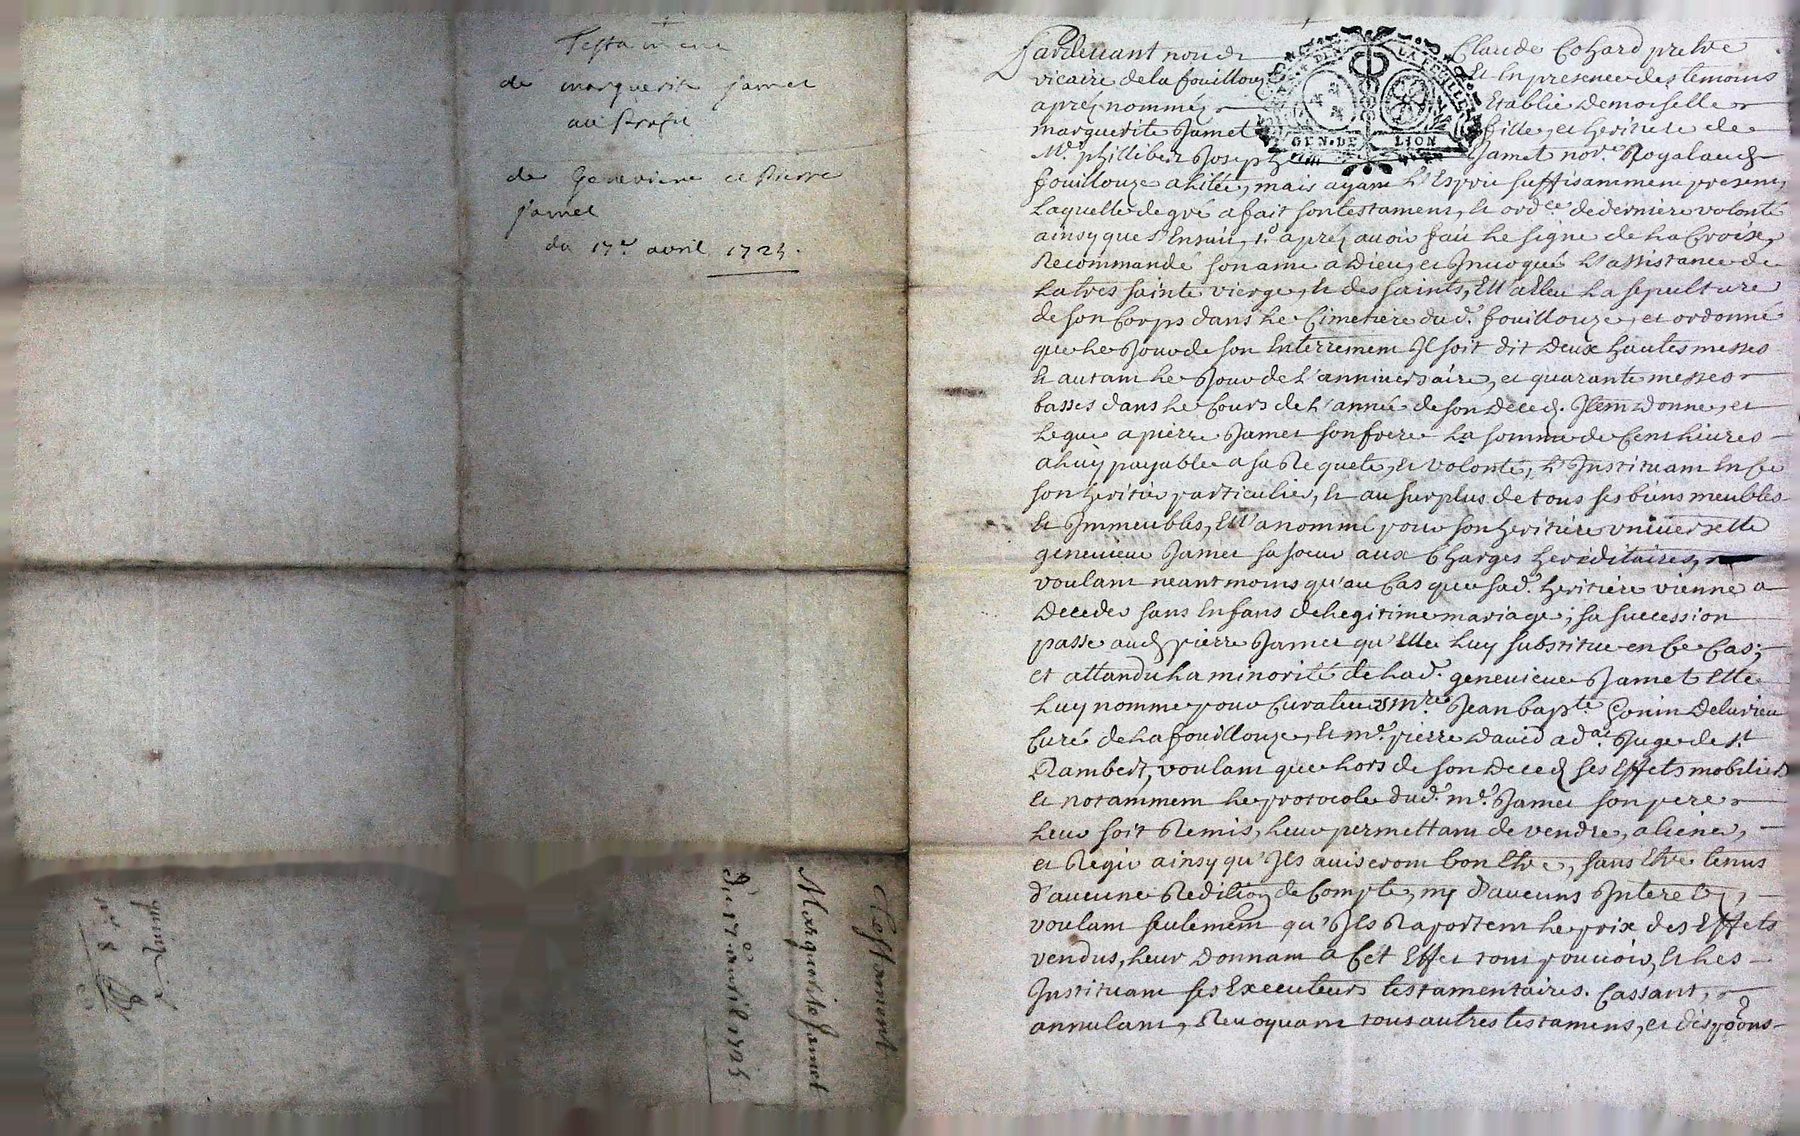 Testament
de marguerite jamet
au profit
de Genevieve et Pierre
jamet
du 17e. avril 1725.
Testament
Marguerite Jamet
Du 17e avril 1725
Pardevant nous Claude Cohard prebtre
vicaire de la fouillouze Et En presence des temoins
aprés nommés Etablie Demoiselle
marguerite Jamet fille, et heritiere de
Me. phillibert Joseph Jamet nore. Royal aud.
fouillouze alitée, mais ayant L'Esprit suffisamment present,
Laquelle de gré a fait son testament, Et ordce. de derniere volonté
ainsy que s'Ensuit, 1o. aprés avoir fait Le signe de La Croix,
Recommandé son ame a Dieu, et Invoqué L'assistance de
La tres sainte vierge, Et des saints, Ell'a Eleu La sepulture
de son Corps dans Le Cimetiere dud. fouillouze, et ordonné
que Le Jour de son Enterrement Il soit dit Deux hautes messes
Et autant Le Jour de L'anniversaire, et quarante messes
basses dans Le Cours de L'année de son Deced. Item Donne, et
Legue a pierre Jamet son frere La somme de Cent Livres
a Luy payable a sa Requete, Et volonté, L'Instituant En Ce
son heritier particulier, Et au surplus de tous ses biens meubles
Et Immeubles, Ell'a nommé pour son heritiere universelle
genevieve Jamet sa soeur aux Charges hereditaires,
voulant neantmoins qu'au Cas que sad. heritiere vienne a
Deceder sans Enfans de Legitime mariage, sa succession
passe aud. pierre Jamet qu'Elle Luy substitue en Ce Cas;
et attandu La minorité de Lad. genevieve Jamet Elle
Luy nomme pour Curateurs mre. Jean bapte. Gonin Delurieu
Curé de La fouillouze, Et me. pierre David adat. Juge de st.
Rambert, voulant que Lors de son Deced ses Effets mobiliers
Et notamment Le protocole dud. me. Jamet son pere
Leur soit Remis, Leur permettant de vendre, aliener,
et Regir ainsy qu'Ils aviseront bon Etre, sans Etre tenus
d'aucune Redition de Compte, ny d'aucuns Interets,
voulant seulement qu'Ils Raportent Le prix des Effets
vendus, Leur Donnant a Cet Effet tout pouvoir, Et Les
Instituant ses Executeurs testamentaires. Cassant,
annulant, Revoquant tous autres testamens, et dispoons
GEN. DE LION